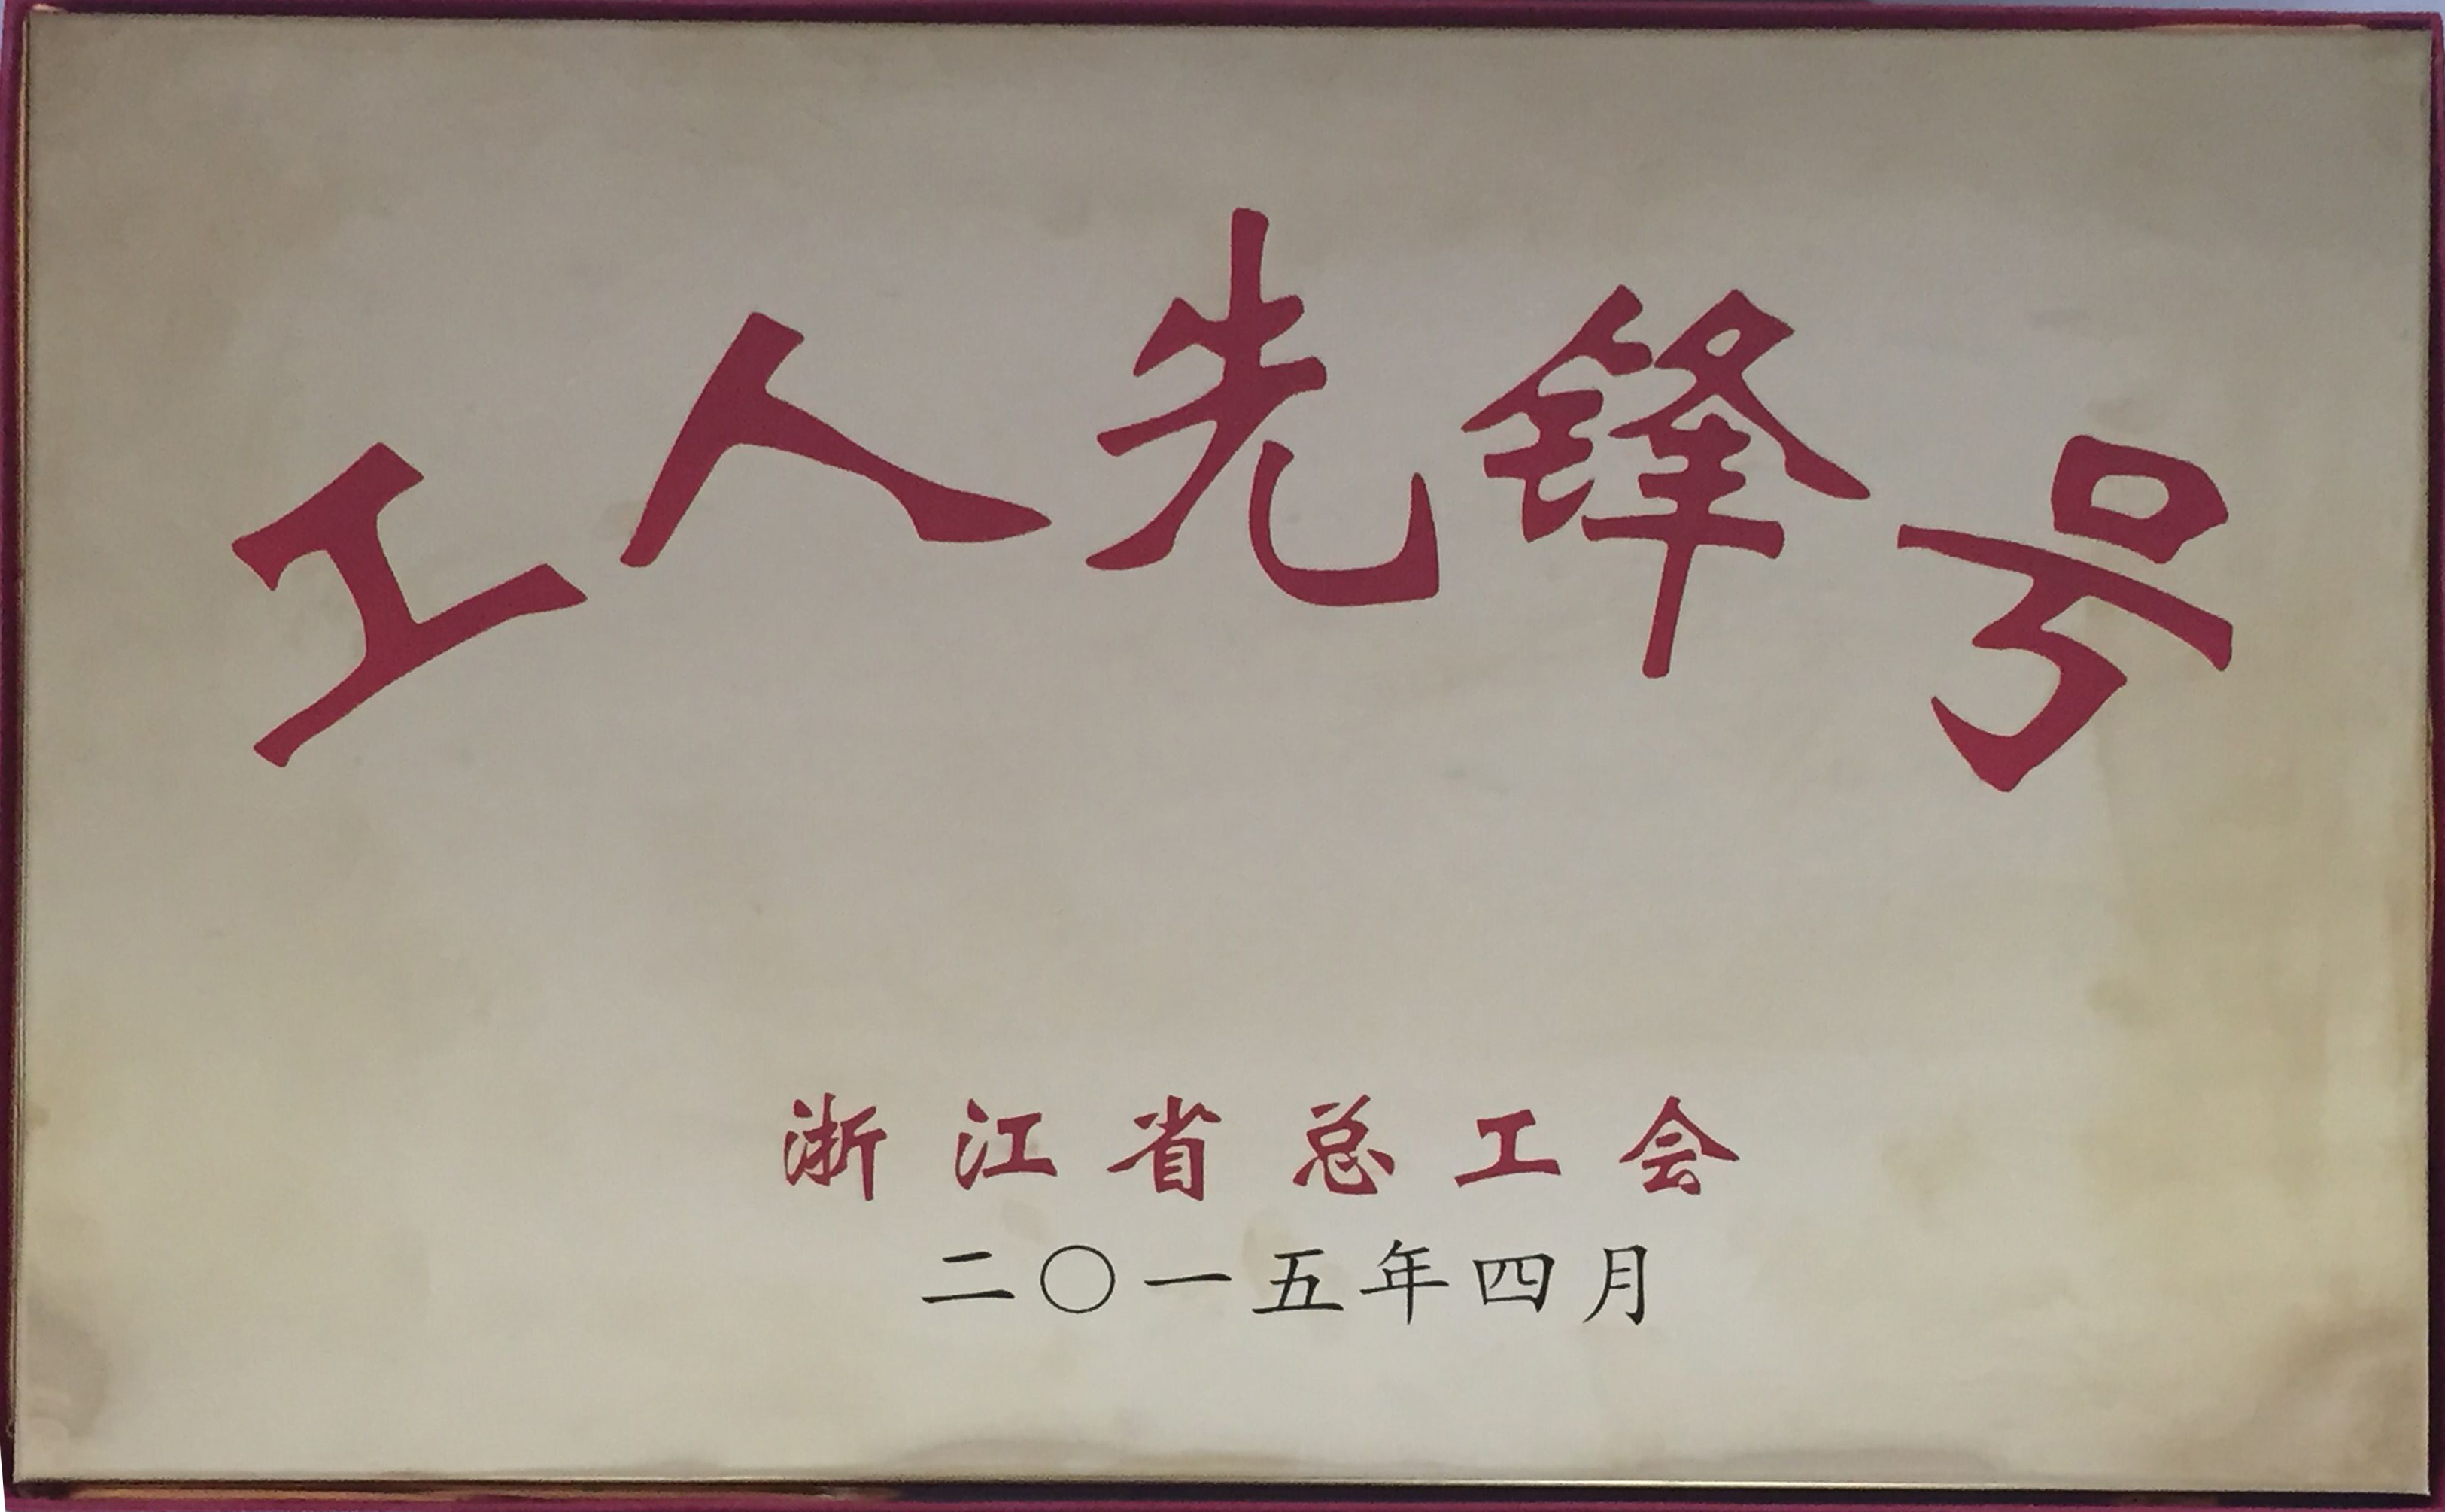 工人先锋号
浙江省总工会
二〇一五年四月